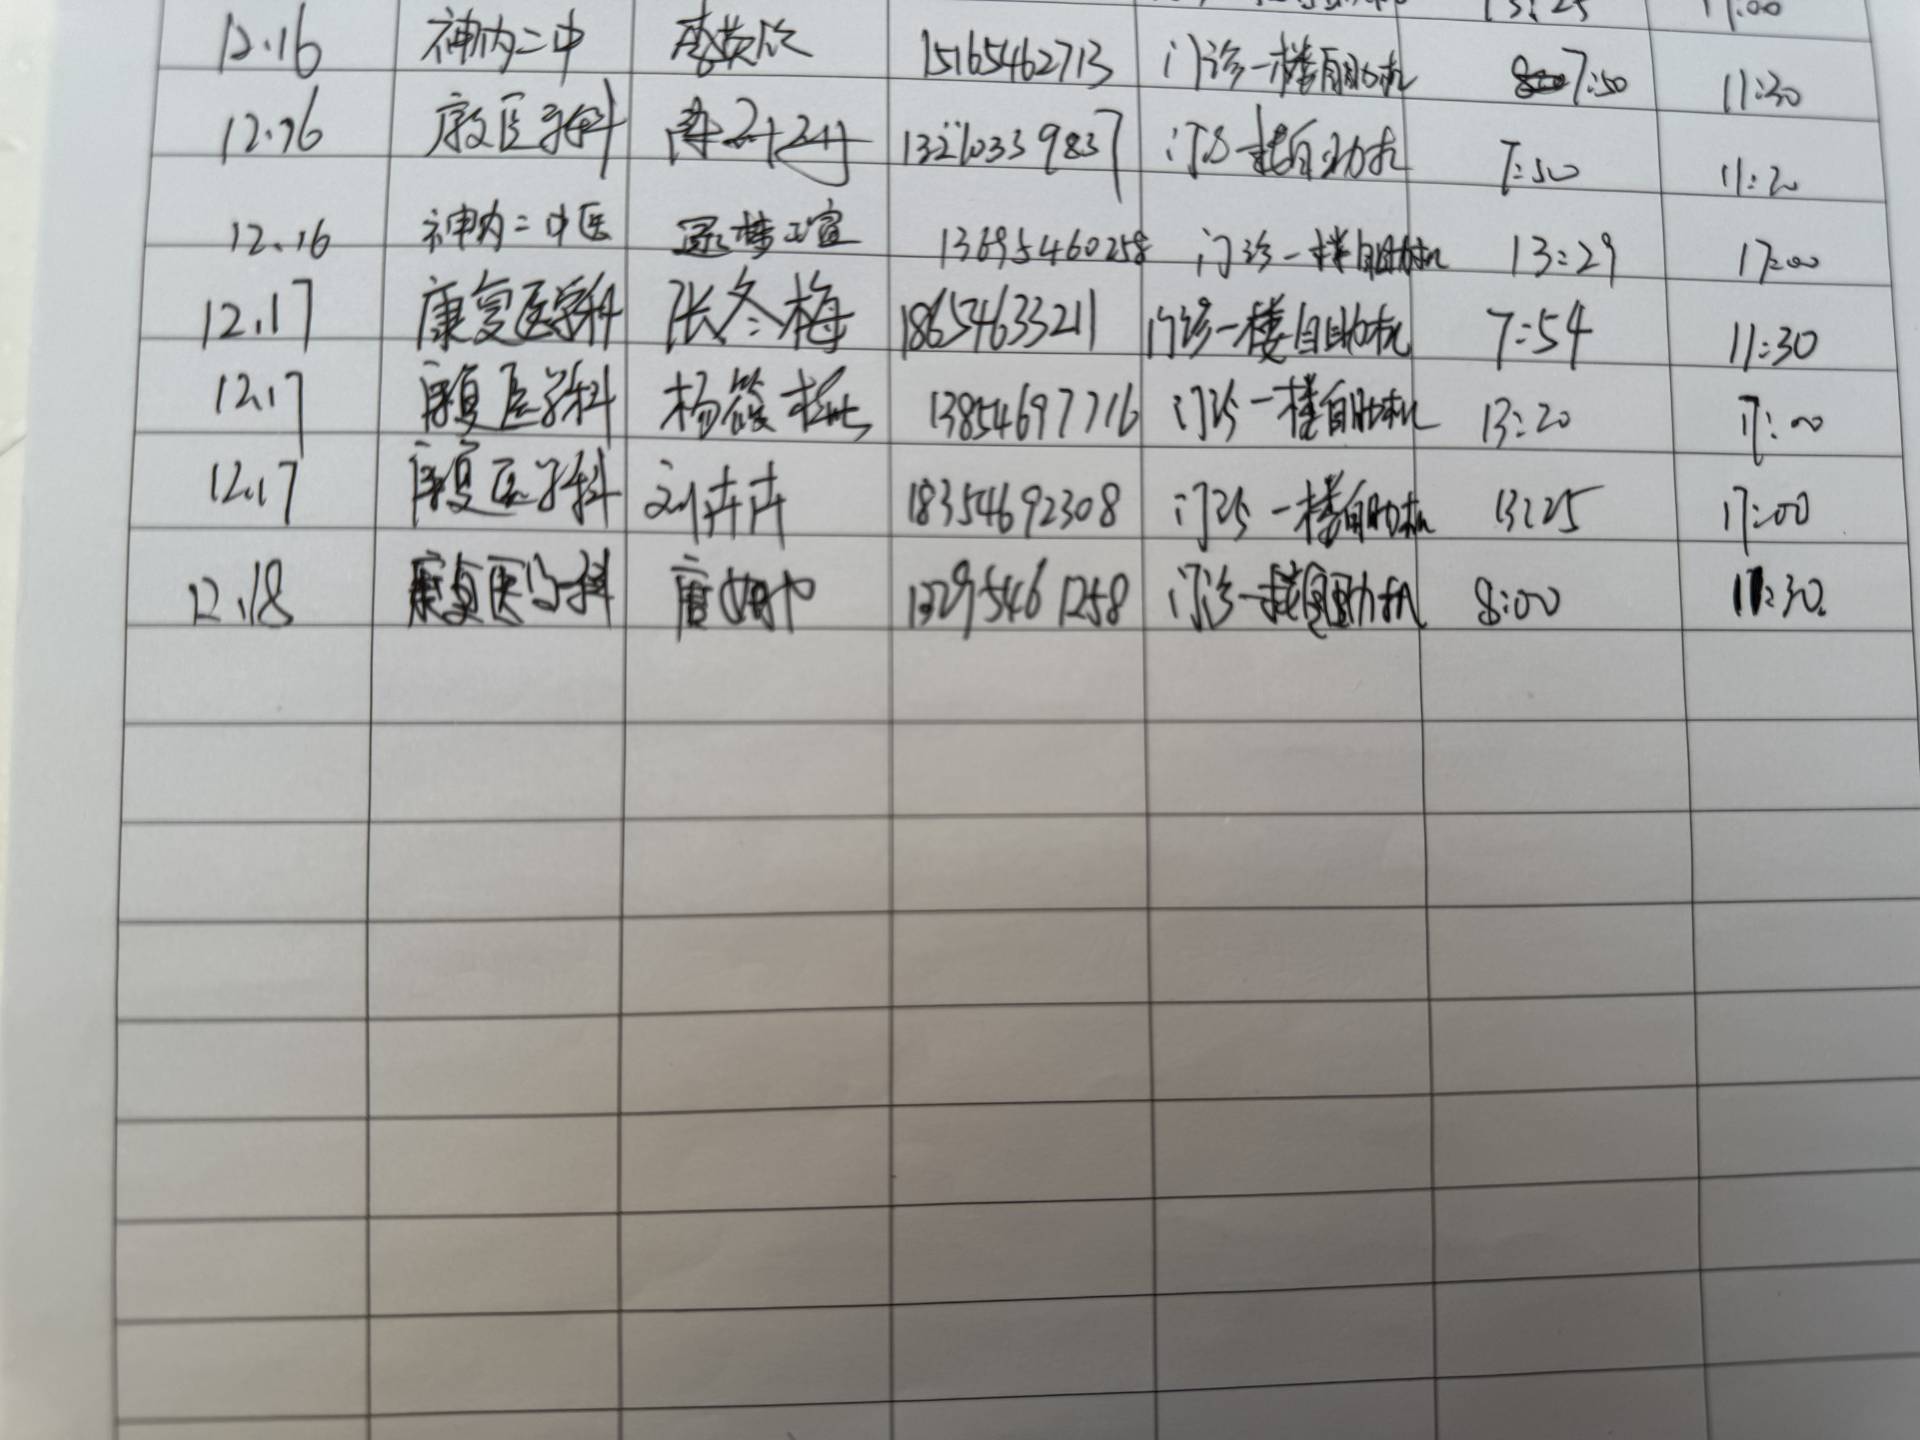 13:25 17:00
12.16 神内二中 李英欣 15165462713 门诊一楼自助机 7:50 11:30
12.16 康复医学科 门诊一楼自助机 7:50 11:20
12.16 神内二中医 13695460258 门诊一楼自助机 13:29 17:00
12.17 康复医学科 张冬梅 18654633211 门诊一楼自助机 7:54 11:30
12.17 康复医学科 杨筱 13854697716 门诊一楼自助机 13:20 17:00
12.17 康复医学科 刘卉卉 18354692308 门诊一楼自助机 13:25 17:00
12.18 康复医学科 门诊一楼自助机 8:00 11:30